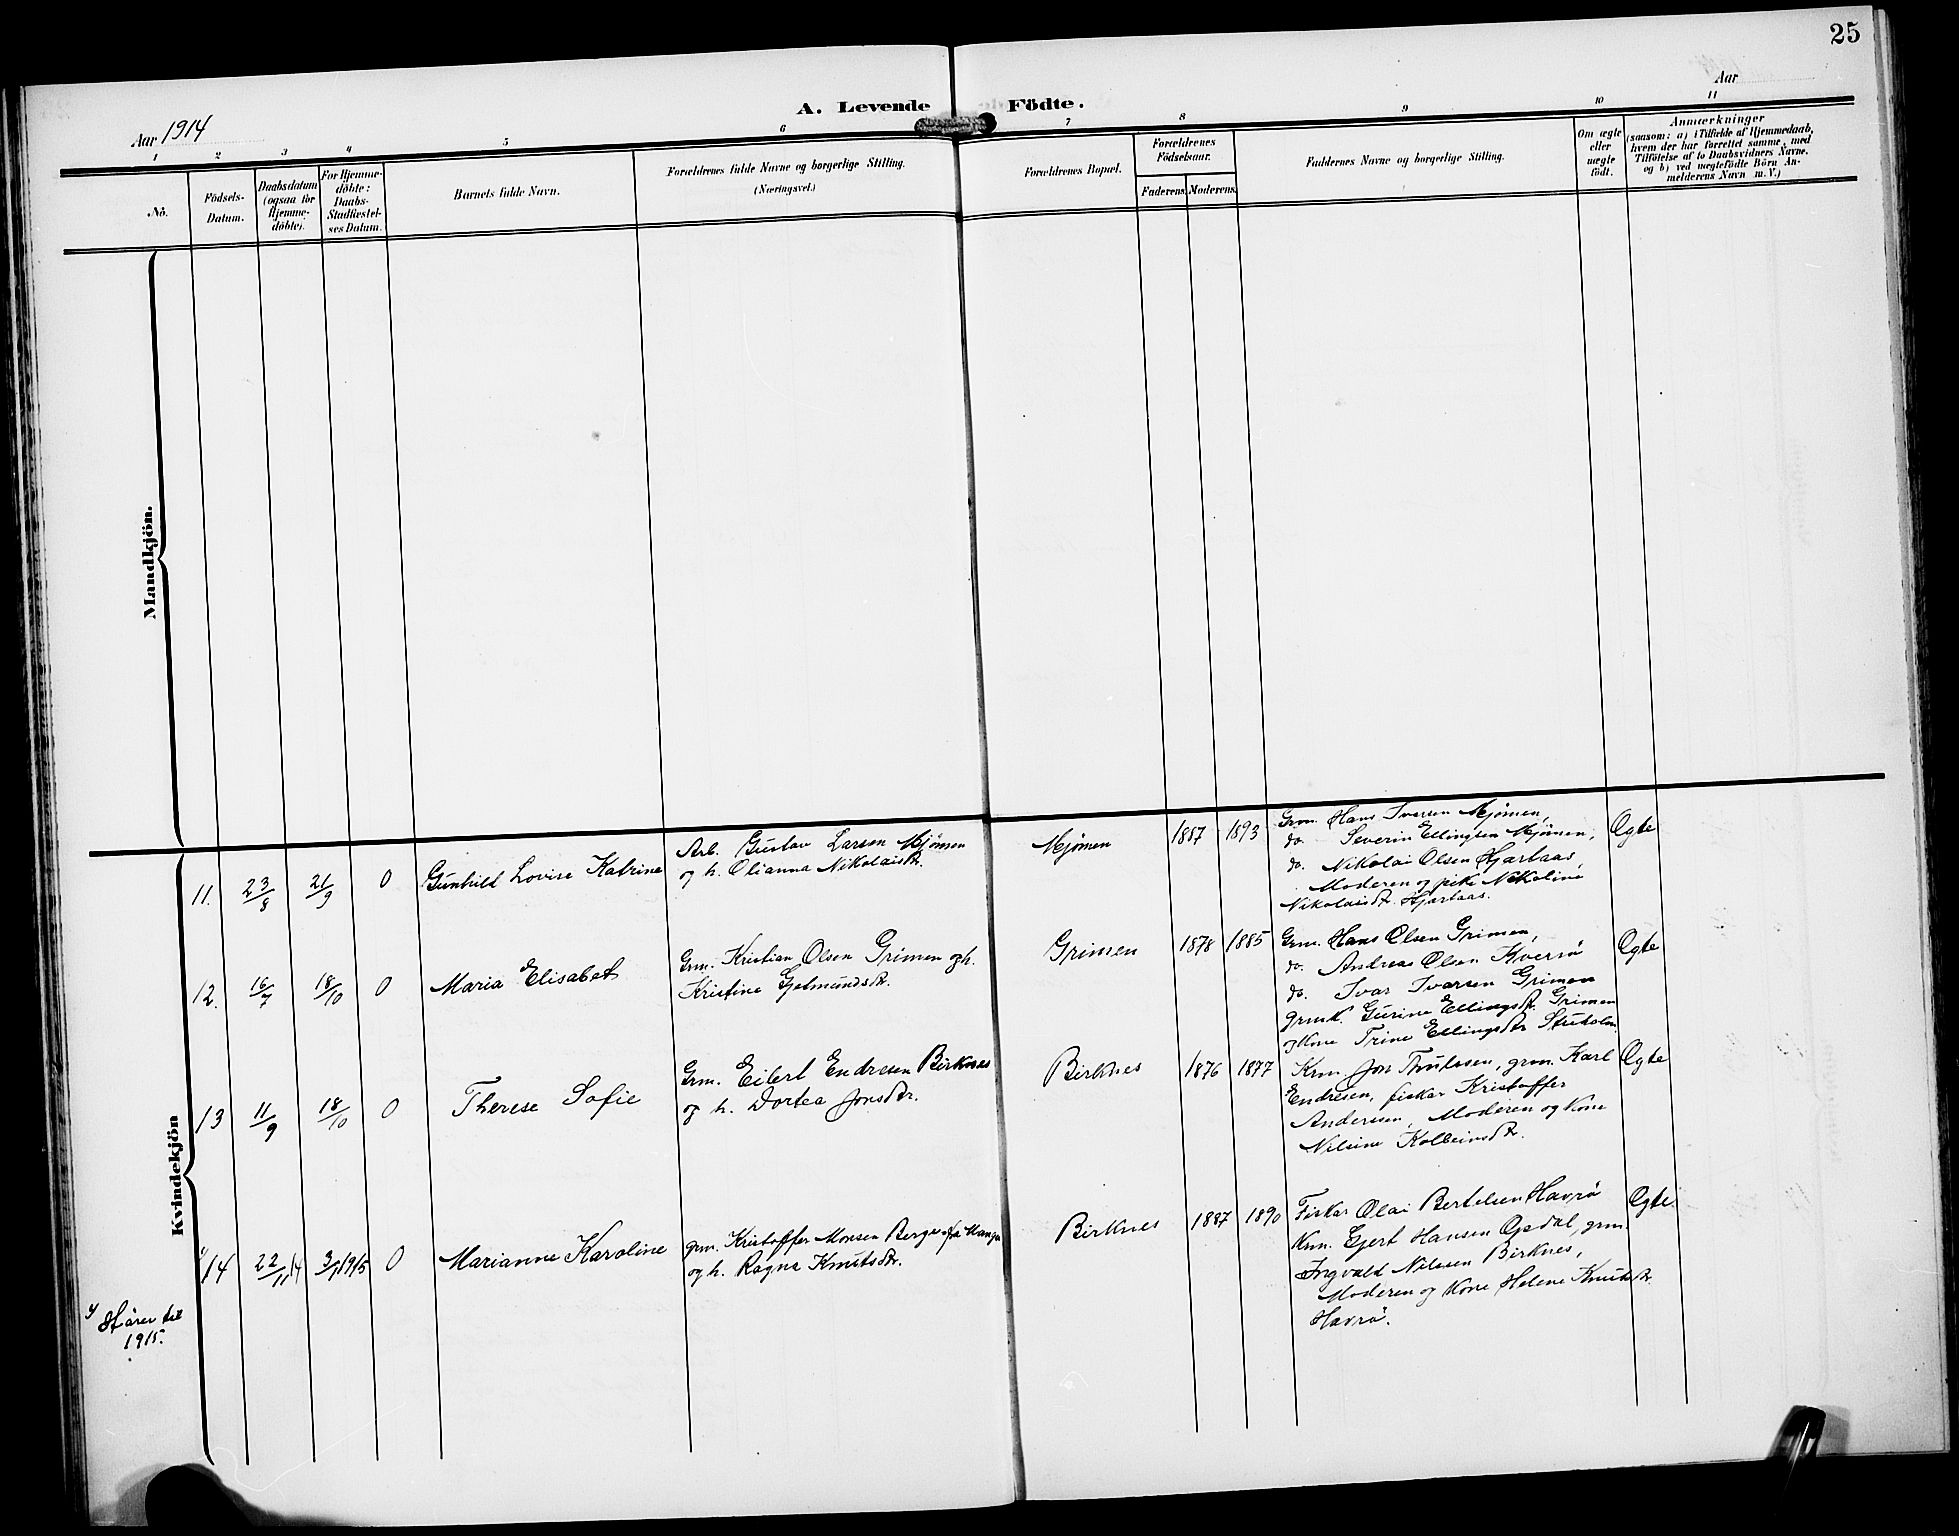 25
A. Levende Födte.
Aar 1914
Aar
1 2 3 4 5 6 7 8 9 10 11
No.
Födsels-Datum.
Daabsdatum (ogsaa for Hjemme-döbte).
For Hjemme-döbte: Daabs-Stadfæstel-ses Datum.
Barnets fulde Navn.
Forældrenes fulde Navne og borgerlige Stilling.
(Næringsvei.)
Forældrenes Bopæl.
Forældrenes Födselsaar.
Faderens. Moderens.
Faddernes Navne og borgerlige Stilling.
Om ægte eller uægte födt.
Anmærkninger
(saasom: a) i Tilfælde af Hjemmedaab, hvem der har forrettet samme, med Tilföielse af to Daabsvidners Navne. og b) ved uægtefödte Börn An-melderens Navn m. V.)
Mandkjön.
Kvindekjön
11. 23/8 21/9 0 Gunhild Lovise Katrine
Arb. Gustav Larsen Mjömen
og h. Olianna Nikolaisdtr.
Mjömen 1887 1893
Grm. Hans Ivarsen Mjömen,
do. Severin Ellingsen Mjömen,
do. Nikolai Olsen Hjartaas,
Moderen og pike Nikoline
Nikolaisdtr. Hjartaas.
Ægte
12. 16/7 18/10 0 Maria Elisabet
Grm. Kristian Olsen Grimen og h.
Kristine Gjetmundsdtr.
Grimen 1878 1885
Grm. Hans Olsen Grimen,
do. Andreas Olsen Kversö
do. Ivar Ivarsen Grimen
grmk. Gurine Ellingsdtr. Grimen
og Kone Trine Ellingsdtr
Ægte
13 11/9 18/10 0 Therese Sofie
Grm. Eilert Endresen Birknes
og h. Dortea Jonsdtr.
Birknes 1876 1877
Krm. Jon Trulssen, grm. Karl
Endresen, fisker Kristoffer
Andersen, Moderen og Kone
Nilsine Kolbeinsdtr.
Ægte
1/ 14 22/11 14 3/1 1915 0 Marianne Karoline
grm. Kristoffer Monsen Berge fra Manger
og h. Ragna Knutsdtr.
Birknes 1887 1890
Fisker Olai Bertelsen Havrö
Krm. Gjert Hansen Opdal, grm.
Ingvald Nilssen Birknes,
Moderen og Kone Helene Knutsdtr.
Havrö.
Ægte.
1/ Hörer til
1915.